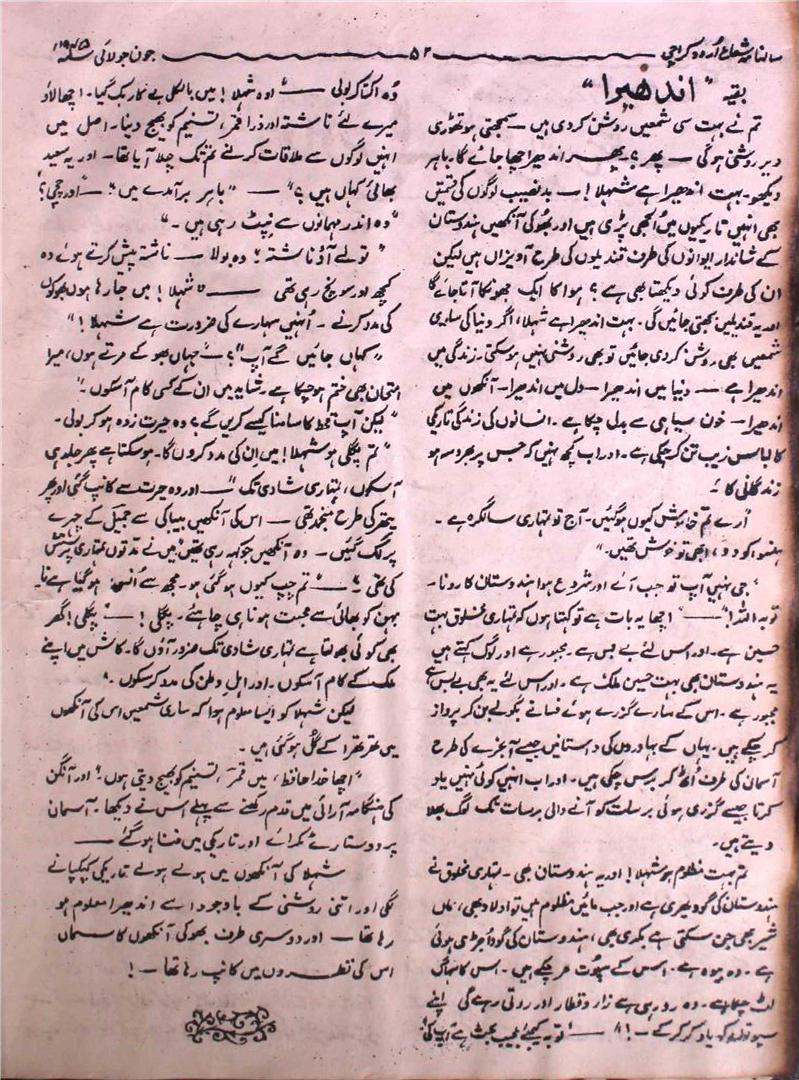 سالنامہ شعاع اُردو کراچی
۵۲
جون جولائی ۱۹۴۵ء
بقیہ "اندھیرا"
تم نے بہت سی شمعیں روشن کردی ہیں — سمجھتی ہو تھوڑی
دیر روشنی ہوگی — پھر؟ پھر اندھیرا چھا جائے گا۔ باہر
دیکھو۔ بہت اندھیرا ہے شہلا! — بدنصیب لوگوں کی قسمتیں
بھی انہیں تاریکیوں میں اُلجھی پڑی ہیں اور بھوکی آنکھیں ہندوستان
کے شاندار ایوانوں کی طرف قندیلوں کی طرح آویزاں ہیں لیکن
ان کی طرف کوئی دیکھتا بھی ہے؟ ہوا کا ایک جھونکا آتا جائے گا
اور یہ قندیلیں بجھتی جائیں گی۔ بہت اندھیرا ہے شہلا، اگر دنیا کی ساری
شمعیں بھی روشن کردی جائیں تو بھی روشنی نہیں ہوسکتی۔ زندگی میں
اندھیرا ہے — دنیا میں اندھیرا — دل میں اندھیرا — آنکھوں میں
اندھیرا — خون سیاہی سے بدل چکا ہے۔ انسانوں کی زندگی تاریکی
کا لباس زیب تن کرچکی ہے۔ اور اب کچھ نہیں کہ جس پر بھروسہ ہو
زندگانی کا"
اُرے تم خاموش کیوں ہوگئیں۔ آج تو تمہاری سالگرہ ہے۔
ہنسو، کودو، ابھی تو خوش تھیں۔"
"جی نہیں آپ تو جب آئے اور شروع ہوا ہندوستان کا رونا۔
توبہ اللہ!" — "اچھا یہ بات ہے تو کہتا ہوں کہ تمہاری مخلوق بہت
حسین ہے۔ اور اس لئے بے بس ہے۔ مجبور ہے اور لوگ کہتے ہیں
یہ ہندوستان بھی بہت حسین ملک ہے۔ اور اس لئے یہ بھی بے بس ہے
مجبور ہے۔ اس کے سارے گزرے ہوئے فسانے بگولے بن کر پرواز
کرچکے ہیں۔ یہاں کے بہادروں کی داستانیں جیسے آبخرے کی طرح
آسمان کی طرف اُٹھ کر برس چکی ہیں۔ اور اب انہیں کوئی نہیں یاد
کرتا جیسے گزری ہوئی برسات کو آنے والی برسات تک لوگ بھلا
دیتے ہیں۔
تم بہت مظلوم ہو شہلا! اور یہ ہندوستان بھی۔ تمہاری مخلوق نے
ہندوستان کی گود بھری ہے اور جب مائیں مظلوم ہیں تو اولاد بھی، ماں
شیر بھی جن سکتی ہے بکری بھی، ہندوستان کی گود اُجڑی ہوئی
ہے۔ وہ بیوہ ہے۔ اس کے سپوت مرچکے ہیں۔ اس کا سہاگ
لٹ چکا ہے۔ وہ رو رہی ہے زار و قطار اور روتی رہے گی اپنے
سپوتوں کو یاد کرکرکے —!!" — "توبہ کیجئے! عجیب بحث ہے آپ کی!
وہ اکتا کر بولی — "اوہ شہلا! میں بالکل ہی بہک گیا۔ اچھا لاؤ
میرے لئے ناشتہ اور ذرا قمر، تسنیم کو بھیج دینا۔ اصل میں
انہیں لوگوں سے ملاقات کرنے تم تک چلا آیا تھا۔ اور یہ سعید
بھائی کہاں ہیں؟" — "باہر برآمدے میں" — "اور چچی؟
"وہ اندر مہمانوں سے نپٹ رہی ہیں۔"
"تو لے آؤ ناشتہ" وہ بولا — ناشتہ پیش کرتے ہوئے وہ
کچھ اور سونچ رہی تھی — "شہلا! میں جا رہا ہوں بھوکوں
کی مدد کرنے۔ اُنہیں سہارے کی ضرورت ہے شہلا!"
"کہاں جائیں گے آپ"؟ — "جہاں بھوکے مرتے ہوں، میرا
امتحان بھی ختم ہوچکا ہے۔ شاید میں ان کے کسی کام آسکوں"۔
"لیکن آپ قحط کا سامنا کیسے کریں گے؟ وہ حیرت زدہ ہوکر بولی۔
"تم پگلی ہو شہلا! میں ان کی مدد کروں گا۔ ہوسکتا ہے پھر جلد ہی
آسکوں، تمہاری شادی تک" — اور وہ حیرت سے کانپ گئی اور پھر
پتھر کی طرح منجمد تھی — اس کی آنکھیں بیباکی سے جمیل کے چہرے
پر لگ گئیں — وہ آنکھیں جو کہہ رہی تھیں "میں نے مدتوں تمہاری پرستش
کی تھی" — "تم چپ کیوں ہوگئی ہو۔ مجھ سے اُنس ہوگیا ہے نا۔
بہن کو بھائی سے محبت ہونا ہی چاہئے۔ پگلی! — پگلی! گھر
بھی کوئی بھولتا ہے تمہاری شادی تک ضرور آؤں گا۔ کاش میں اپنے
ملک کے کام آسکوں۔ اور اہلِ وطن کی مدد کرسکوں۔"
لیکن شہلا کو ایسا معلوم ہوا کہ ساری شمعیں اس کی آنکھوں
میں تھرتھرا کے گُل ہوگئی ہیں۔
"اچھا خدا حافظ، میں قمر، تسنیم کو بھیج دیتی ہوں" اور آنگن
کی ہنگامہ آرائی میں قدم رکھنے سے پہلے اس نے دیکھا۔ آسمان
پر دو ستارے ٹکرائے اور تاریکی میں فنا ہوگئے —
شہلا کی آنکھوں میں ہولے ہولے تاریکی کپکپانے
لگی اور اتنی روشنی کے باوجود اسے اندھیرا معلوم ہو
رہا تھا — اور دوسری طرف بھوکی آنکھوں کا سماں
اس کی نظروں میں کانپ رہا تھا —!